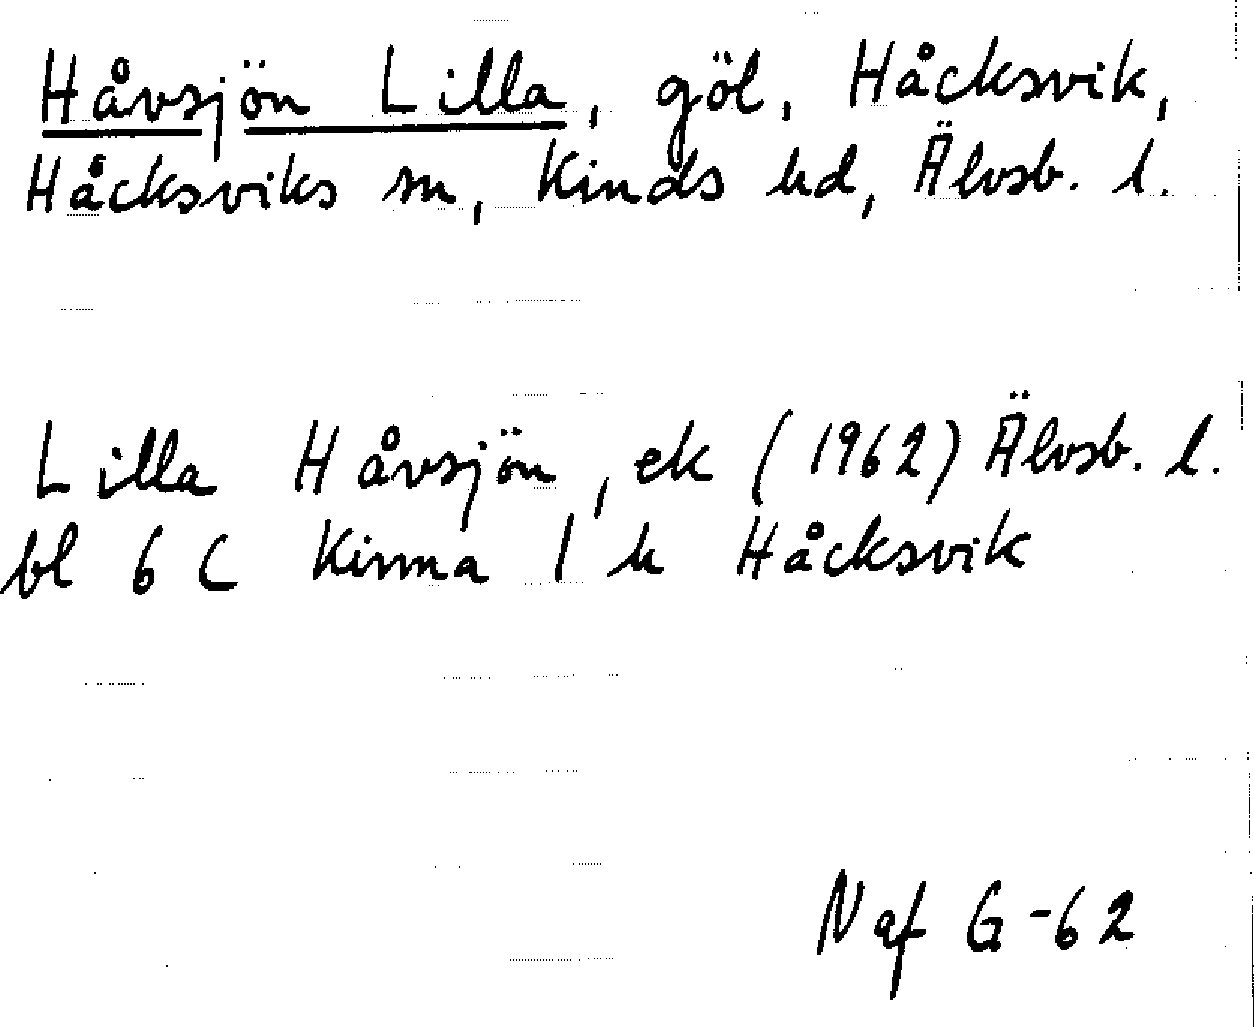 Håvsjön Lilla, göl, Håcksvik,
Håcksviks sn, Kinds hd, Älvsb. l.
Lilla Håvsjön, ek (1962) Älvsb. l.
bl 6 C Kinna 1 h Håcksvik
Naf G-62